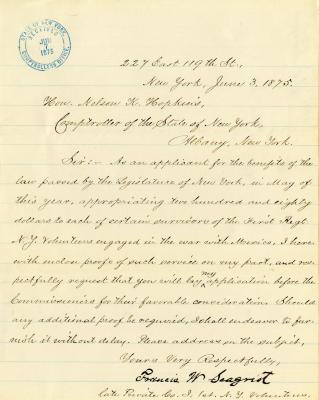 STATE OF NEW YORK
RECEIVED
JUN
1875
COMPTROLLER'S OFFICE
227 East 119th St.,
New York, June 3, 1875.
Hon. Nelson K. Hopkins,
Comptroller of the State of New York,
Albany, New York.
Sir:- As an applicant for the benefits of the
law passed by the Legislature of New York, in May of
this year, appropriating two hundred and eighty
dollars to each of certain survivors of the First Regt
N.Y. Volunteers engaged in the war with Mexico, I here-
with enclose proofs of such service on my part, and res-
pectfully request that you will lay my application before the
Commissioners for their favorable consideration. Should
any additional proof be required, I shall endeavor to fur-
nish it without delay. Please address on the subject,
Yours Very Respectfully,
Francis W Seagrist
late Private Co. I. 1st. N.Y. Volunteers.